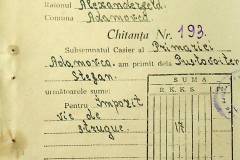 Raionul Alexanderfeld
Comuna Adamovca
Chitanța Nr. 193.
Subsemnatul Casier al Primariei
Adamovca am primit dela Pustovoiter
Stefan.
următoarele sume:
SUMA
R. K. K. S.
Pentru Impozit
vie de
strugue.
17